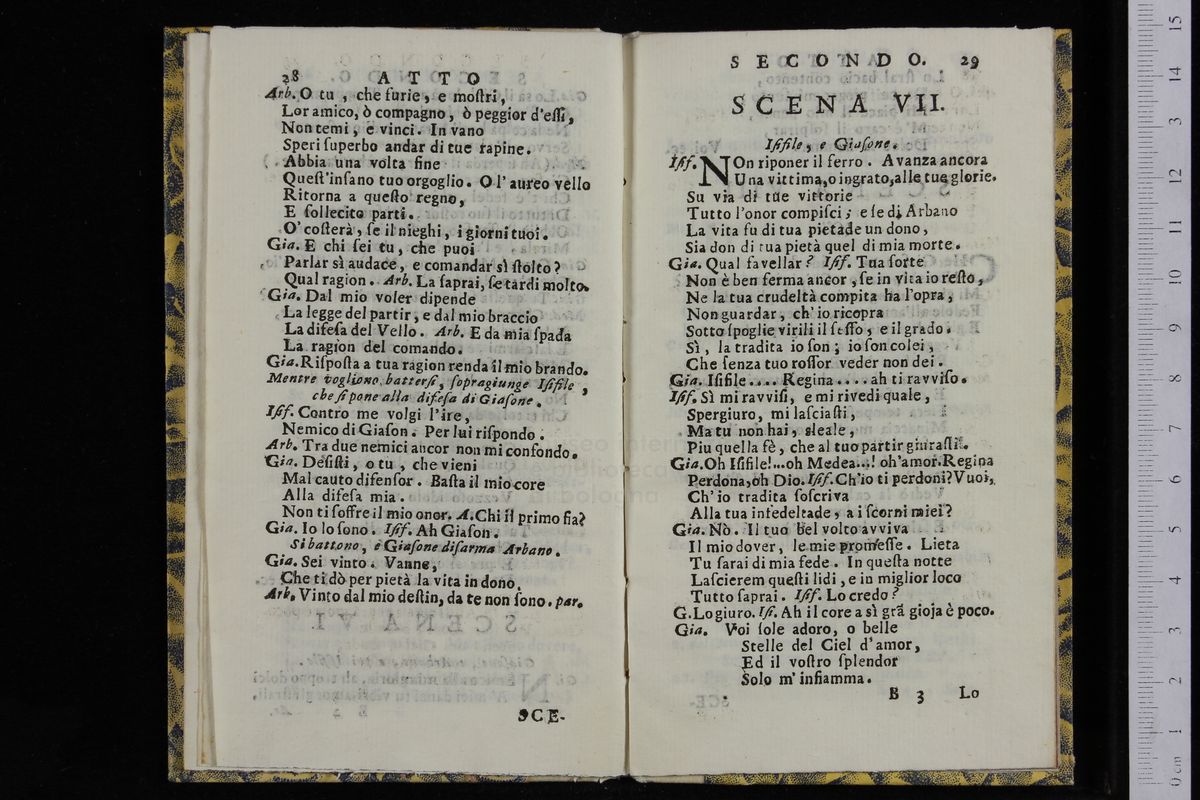 28 ATTO
Arb. O tu , che furie, e moſtri,
Lor amico, ò compagno, ò peggior d'eſſi,
Non temi, e vinci. In vano
Speri ſuperbo andar di tue rapine.
Abbia una volta fine
Queſt'inſano tuo orgoglio. O l'aureo vello
Ritorna a queſto regno,
E ſollecito parti.
O' coſterà, ſe il nieghi, i giorni tuoi.
Gia. E chi ſei tu, che puoi
Parlar sì audace, e comandar sì ſtolto?
Qual ragion. Arb. La ſaprai, ſe tardi molto.
Gia. Dal mio voler dipende
La legge del partir, e dal mio braccio
La difeſa del Vello. Arb. E da mia ſpada
La ragion del comando.
Gia. Riſpoſta a tua ragion renda il mio brando.
Mentre vogliono batterſi, ſopragiunge Iſifile,
che ſi pone alla difeſa di Giaſone.
Iſif. Contro me volgi l'ire,
Nemico di Giaſon. Per lui riſpondo.
Arb. Tra due nemici ancor non mi confondo.
Gia. Deſiſti, o tu, che vieni
Mal cauto difenſor. Baſta il mio core
Alla difeſa mia.
Non ti ſoffre il mio onor. A. Chi il primo fia?
Gia. Io lo ſono. Iſif. Ah Giaſon.
Si battono, e Giaſone diſarma Arbano.
Gia. Sei vinto. Vanne,
Che ti dò per pietà la vita in dono.
Arb. Vinto dal mio deſtin, da te non ſono. par.
SCE-
SECONDO. 29
SCENA VII.
Iſifile, e Giaſone.
Iſif. NOn riponer il ferro. Avanza ancora
Una vittima, o ingrato, alle tue glorie.
Su via di tue vittorie
Tutto l'onor compiſci; e ſe di Arbano
La vita fu di tua pietade un dono,
Sia don di tua pietà quel di mia morte.
Gia. Qual favellar? Iſif. Tua ſorte
Non è ben ferma ancor, ſe in vita io reſto,
Ne la tua crudeltà compita ha l'opra,
Non guardar, ch'io ricopra
Sotto ſpoglie virili il ſeſſo, e il grado.
Sì, la tradita io ſon; io ſon colei,
Che ſenza tuo roſſor veder non dei.
Gia. Iſifile.... Regina.... ah ti ravviſo.
Iſif. Sì mi ravviſi, e mi rivedi quale,
Spergiuro, mi laſciaſti,
Ma tu non hai, sleale,
Piu quella fè, che al tuo partir giuraſti.
Gia. Oh Iſifile!...oh Medea...! oh'amor. Regina
Perdona, oh Dio. Iſif. Ch'io ti perdoni? Vuoi,
Ch'io tradita ſoſcriva
Alla tua infedeltade, a i ſcorni miei?
Gia. Nò. Il tuo bel volto avviva
Il mio dover, le mie promeſſe. Lieta
Tu ſarai di mia fede. In queſta notte
Laſcierem queſti lidi, e in miglior loco
Tutto ſaprai. Iſif. Lo credo?
G. Lo giuro. Iſ. Ah il core a sì grā gioja è poco.
Gia. Voi ſole adoro, o belle
Stelle del Ciel d'amor,
Ed il voſtro ſplendor
Solo m'infiamma.
B 3 Lo